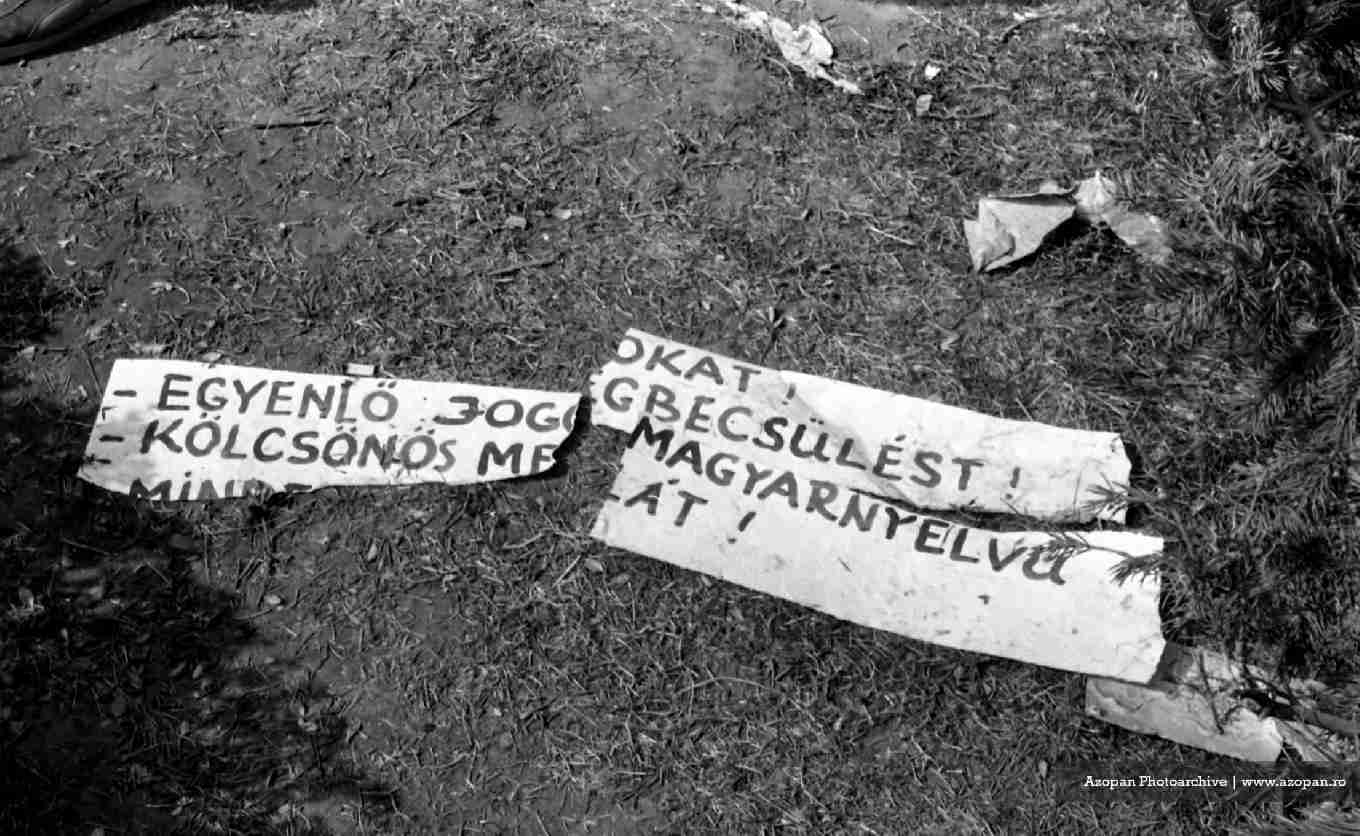 - EGYENLŐ JOGO
OKAT !
- KÖLCSÖNÖS ME
GBECSÜLÉST !
- MINDE
MAGYARNYELVŰ
LÁT !
Azopan Photoarchive | www.azopan.ro